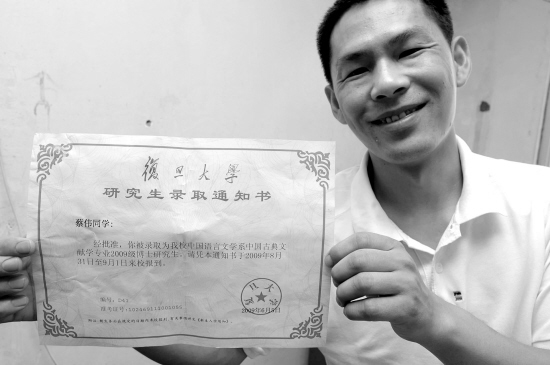 復旦大學
研究生录取通知书
蔡伟同学:
经批准,你被录取为我校中国语言文学系中国古典文
献学专业2009级博士研究生。请凭本通知书于2009年8月
31日至9月1日来校报到。
编号:
复旦大学
2009年6月5日